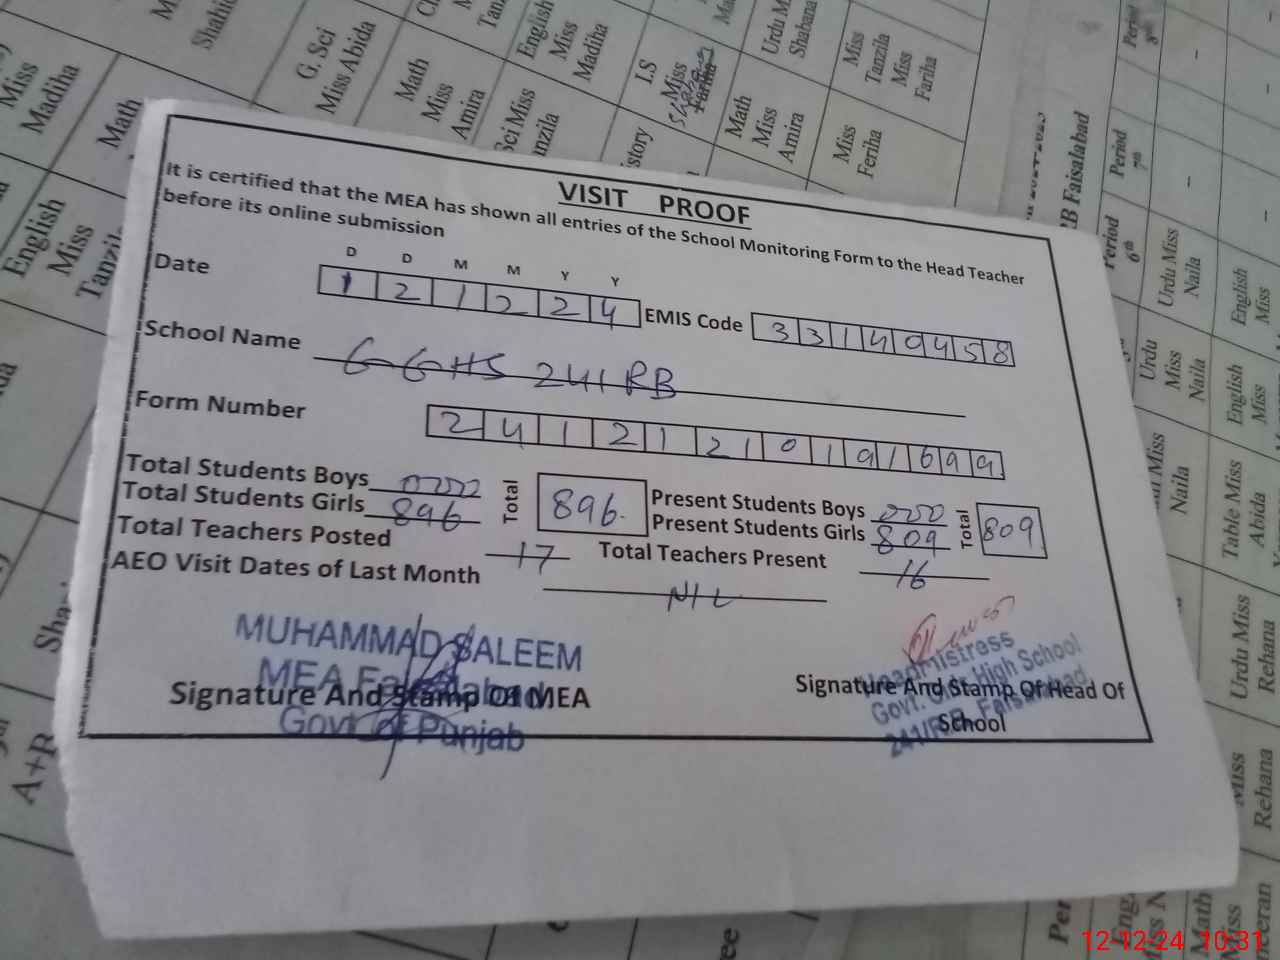 VISIT PROOF
It is certified that the MEA has shown all entries of the School Monitoring Form to the Head Teacher
before its online submission
D D M M Y Y
Date 1 2 1 2 2 4 EMIS Code 3 3 1 4 0 4 5 8
School Name GGHS 241 RB
Form Number 2 4 1 2 1 2 1 0 1 9 1 6 9 9
Total Students Boys 000 Total 896 Present Students Boys 000 Total 809
Total Students Girls 896 Present Students Girls 809
Total Teachers Posted 17 Total Teachers Present 16
AEO Visit Dates of Last Month NIL
MUHAMMAD SALEEM
MEA Faisalabad
Govt of Punjab
Signature And Stamp Of MEA
Headmistress
Govt. Girls High School
241/RB, Faisalabad
Signature And Stamp Of Head Of
School
Miss
Madiha
Math
English
Miss
G. Sci
Miss Abida
Math
Miss
Amira
English
Miss
Madiha
I.S
Miss
Math
Miss
Amira
Miss
Tanzila
Miss
Fariha
Miss
Feriha
RB Faisalabad
Period
7th
Period
6th
Urdu Miss
Naila
English
Miss
Urdu
Miss
Naila
English
Miss
Naila
Table Miss
Abida
Urdu Miss
Rehana
Miss
Rehana
A+R
Math
Miss
12-12-24 10:31